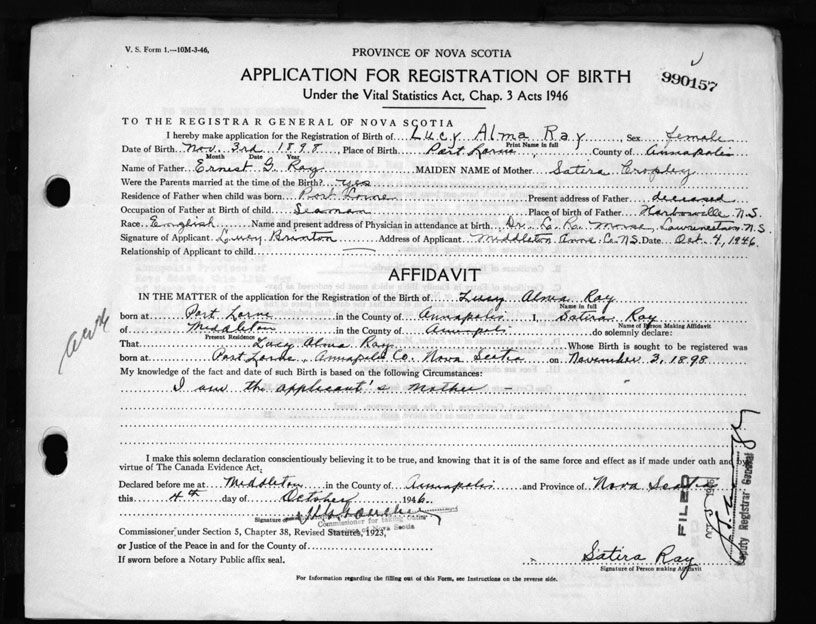 V. S. Form 1.—10M-3-46.
PROVINCE OF NOVA SCOTIA
990157
APPLICATION FOR REGISTRATION OF BIRTH
Under the Vital Statistics Act, Chap. 3 Acts 1946
TO THE REGISTRAR GENERAL OF NOVA SCOTIA
I hereby make application for the Registration of Birth of Lucy Alma Ray, Sex female
Print Name in full
Date of Birth Nov. 3rd 1898 Place of Birth Port Lorne County of Annapolis
Month Date Year
Name of Father Ernest G. Ray MAIDEN NAME of Mother Satira Cropley
Were the Parents married at the time of the Birth? yes
Residence of Father when child was born Port Lorne Present address of Father deceased
Occupation of Father at Birth of child Seaman Place of Birth of Father Harborville N.S.
Race English Name and present address of Physician in attendance at birth Dr. L. R. Morse, Lawrencetown N.S.
Signature of Applicant Lucy Brinton Address of Applicant Middleton Anna. Co. N.S. Date Oct. 4, 1946
Relationship of Applicant to child
AFFIDAVIT
IN THE MATTER of the application for the Registration of the Birth of Lucy Alma Ray
Name in full
born at Port Lorne in the County of Annapolis I, Satira Ray
Name of Person Making Affidavit
of Middleton in the County of Annapolis do solemnly declare:
Present Residence
That Lucy Alma Ray Whose Birth is sought to be registered was
born at Port Lorne, Annapolis Co. Nova Scotia on November 3, 1898
My knowledge of the fact and date of such Birth is based on the following Circumstances:
I am the applicant's mother –
I make this solemn declaration conscientiously believing it to be true, and knowing that it is of the same force and effect as if made under oath and by
virtue of The Canada Evidence Act.
Declared before me at Middleton in the County of Annapolis and Province of Nova Scotia
this 4th day of October 1946.
Signature of
Commissioner for taking
of Nova Scotia
Commissioner under Section 5, Chapter 38, Revised Statutes, 1923,
or Justice of the Peace in and for the County of
If sworn before a Notary Public affix seal.
Satira Ray
Signature of Person making Affidavit
For Information regarding the filling out of this Form, see Instructions on the reverse side.
FILED
Deputy Registrar General